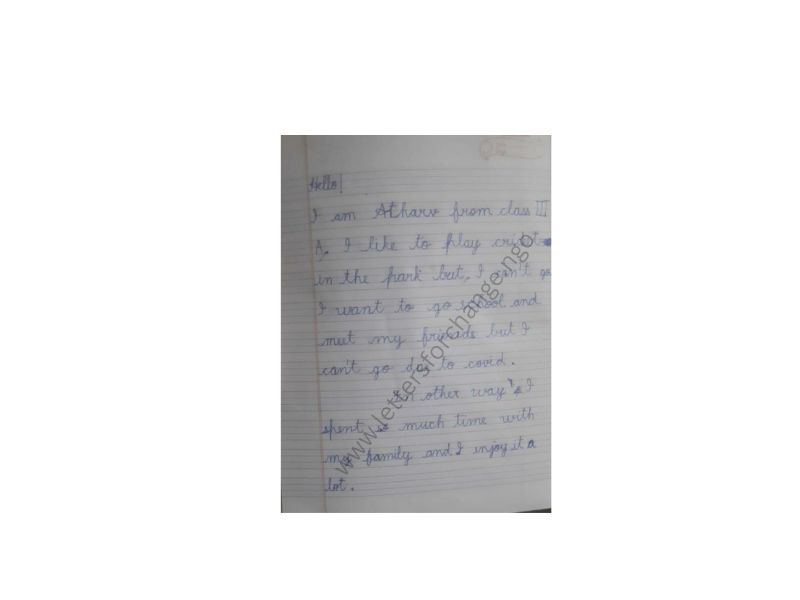 Hello!
I am Atharv from class III
A. I like to play cricket
in the park but, I can't go
I want to go school and
meet my friends but I
can't go due to covid.
In other way, I
spent so much time with
my family and I enjoy it a
lot.
www.lettersforchange.ngo